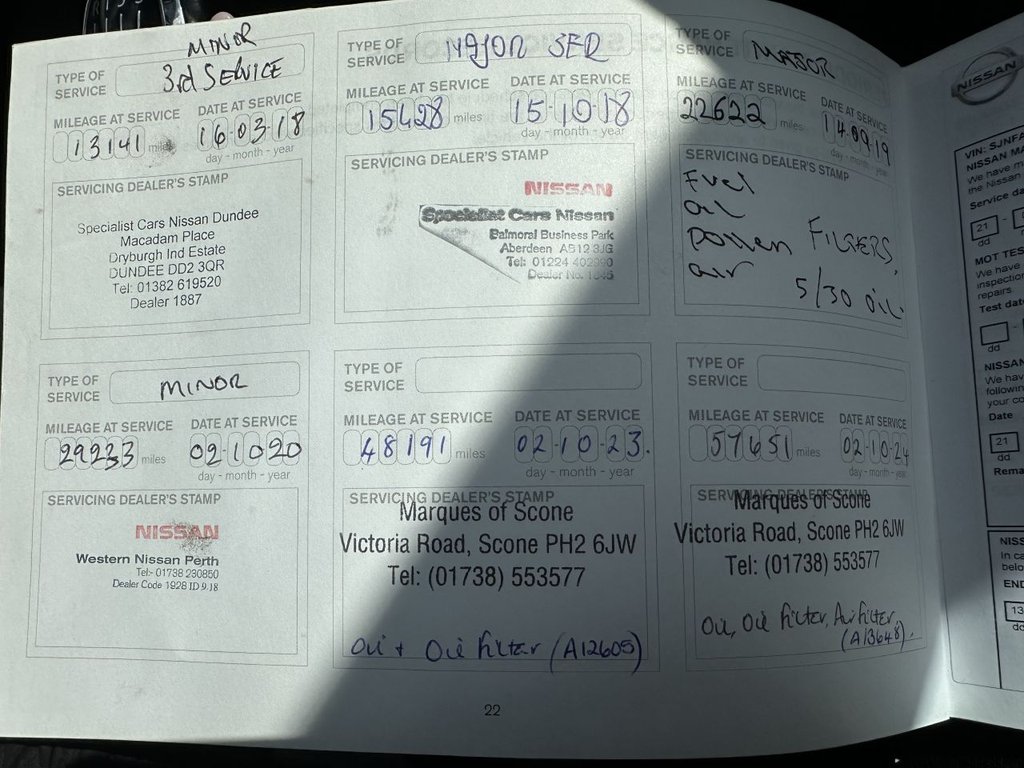 TYPE OF SERVICE MINOR 3rd SERVICE
MILEAGE AT SERVICE DATE AT SERVICE
13141 miles 16-03-18
day - month - year
SERVICING DEALER'S STAMP
Specialist Cars Nissan Dundee
Macadam Place
Dryburgh Ind Estate
DUNDEE DD2 3QR
Tel: 01382 619520
Dealer 1887
TYPE OF SERVICE MAJOR SER
MILEAGE AT SERVICE DATE AT SERVICE
15428 miles 15-10-18
day - month - year
SERVICING DEALER'S STAMP
NISSAN
Specialist Cars Nissan
Balmoral Business Park
Aberdeen AB12 3JG
Tel: 01224
Dealer No.
TYPE OF SERVICE MAJOR
MILEAGE AT SERVICE DATE AT SERVICE
22622 miles 14-09-19
day - month - year
SERVICING DEALER'S STAMP
Fuel
oil
pollen FILTERS,
air
5/30 OIL.
TYPE OF SERVICE MINOR
MILEAGE AT SERVICE DATE AT SERVICE
29233 miles 02-10-20
day - month - year
SERVICING DEALER'S STAMP
NISSAN
Western Nissan Perth
Tel:- 01738 230850
Dealer Code 1928 ID 9.18
TYPE OF SERVICE
MILEAGE AT SERVICE DATE AT SERVICE
48191 miles 02-10-23.
day - month - year
SERVICING DEALER'S STAMP
Marques of Scone
Victoria Road, Scone PH2 6JW
Tel: (01738) 553577
Oil + Oil Filter (A12605)
TYPE OF SERVICE
MILEAGE AT SERVICE DATE AT SERVICE
57651 miles 02-10-24
day - month - year
SERVICING DEALER'S STAMP
Marques of Scone
Victoria Road, Scone PH2 6JW
Tel: (01738) 553577
Oil, Oil Filter, Air Filter,
(A13648).
22
NISSAN
VIN: SJNFA
NISSAN MA
We have m
the Nissan
Service da
21
dd
MOT TES
We have
inspectio
repairs
Test date
dd
NISSAN
We hav
followin
your co
Date
21
dd
Rema
NISS
In ca
belo
END
13